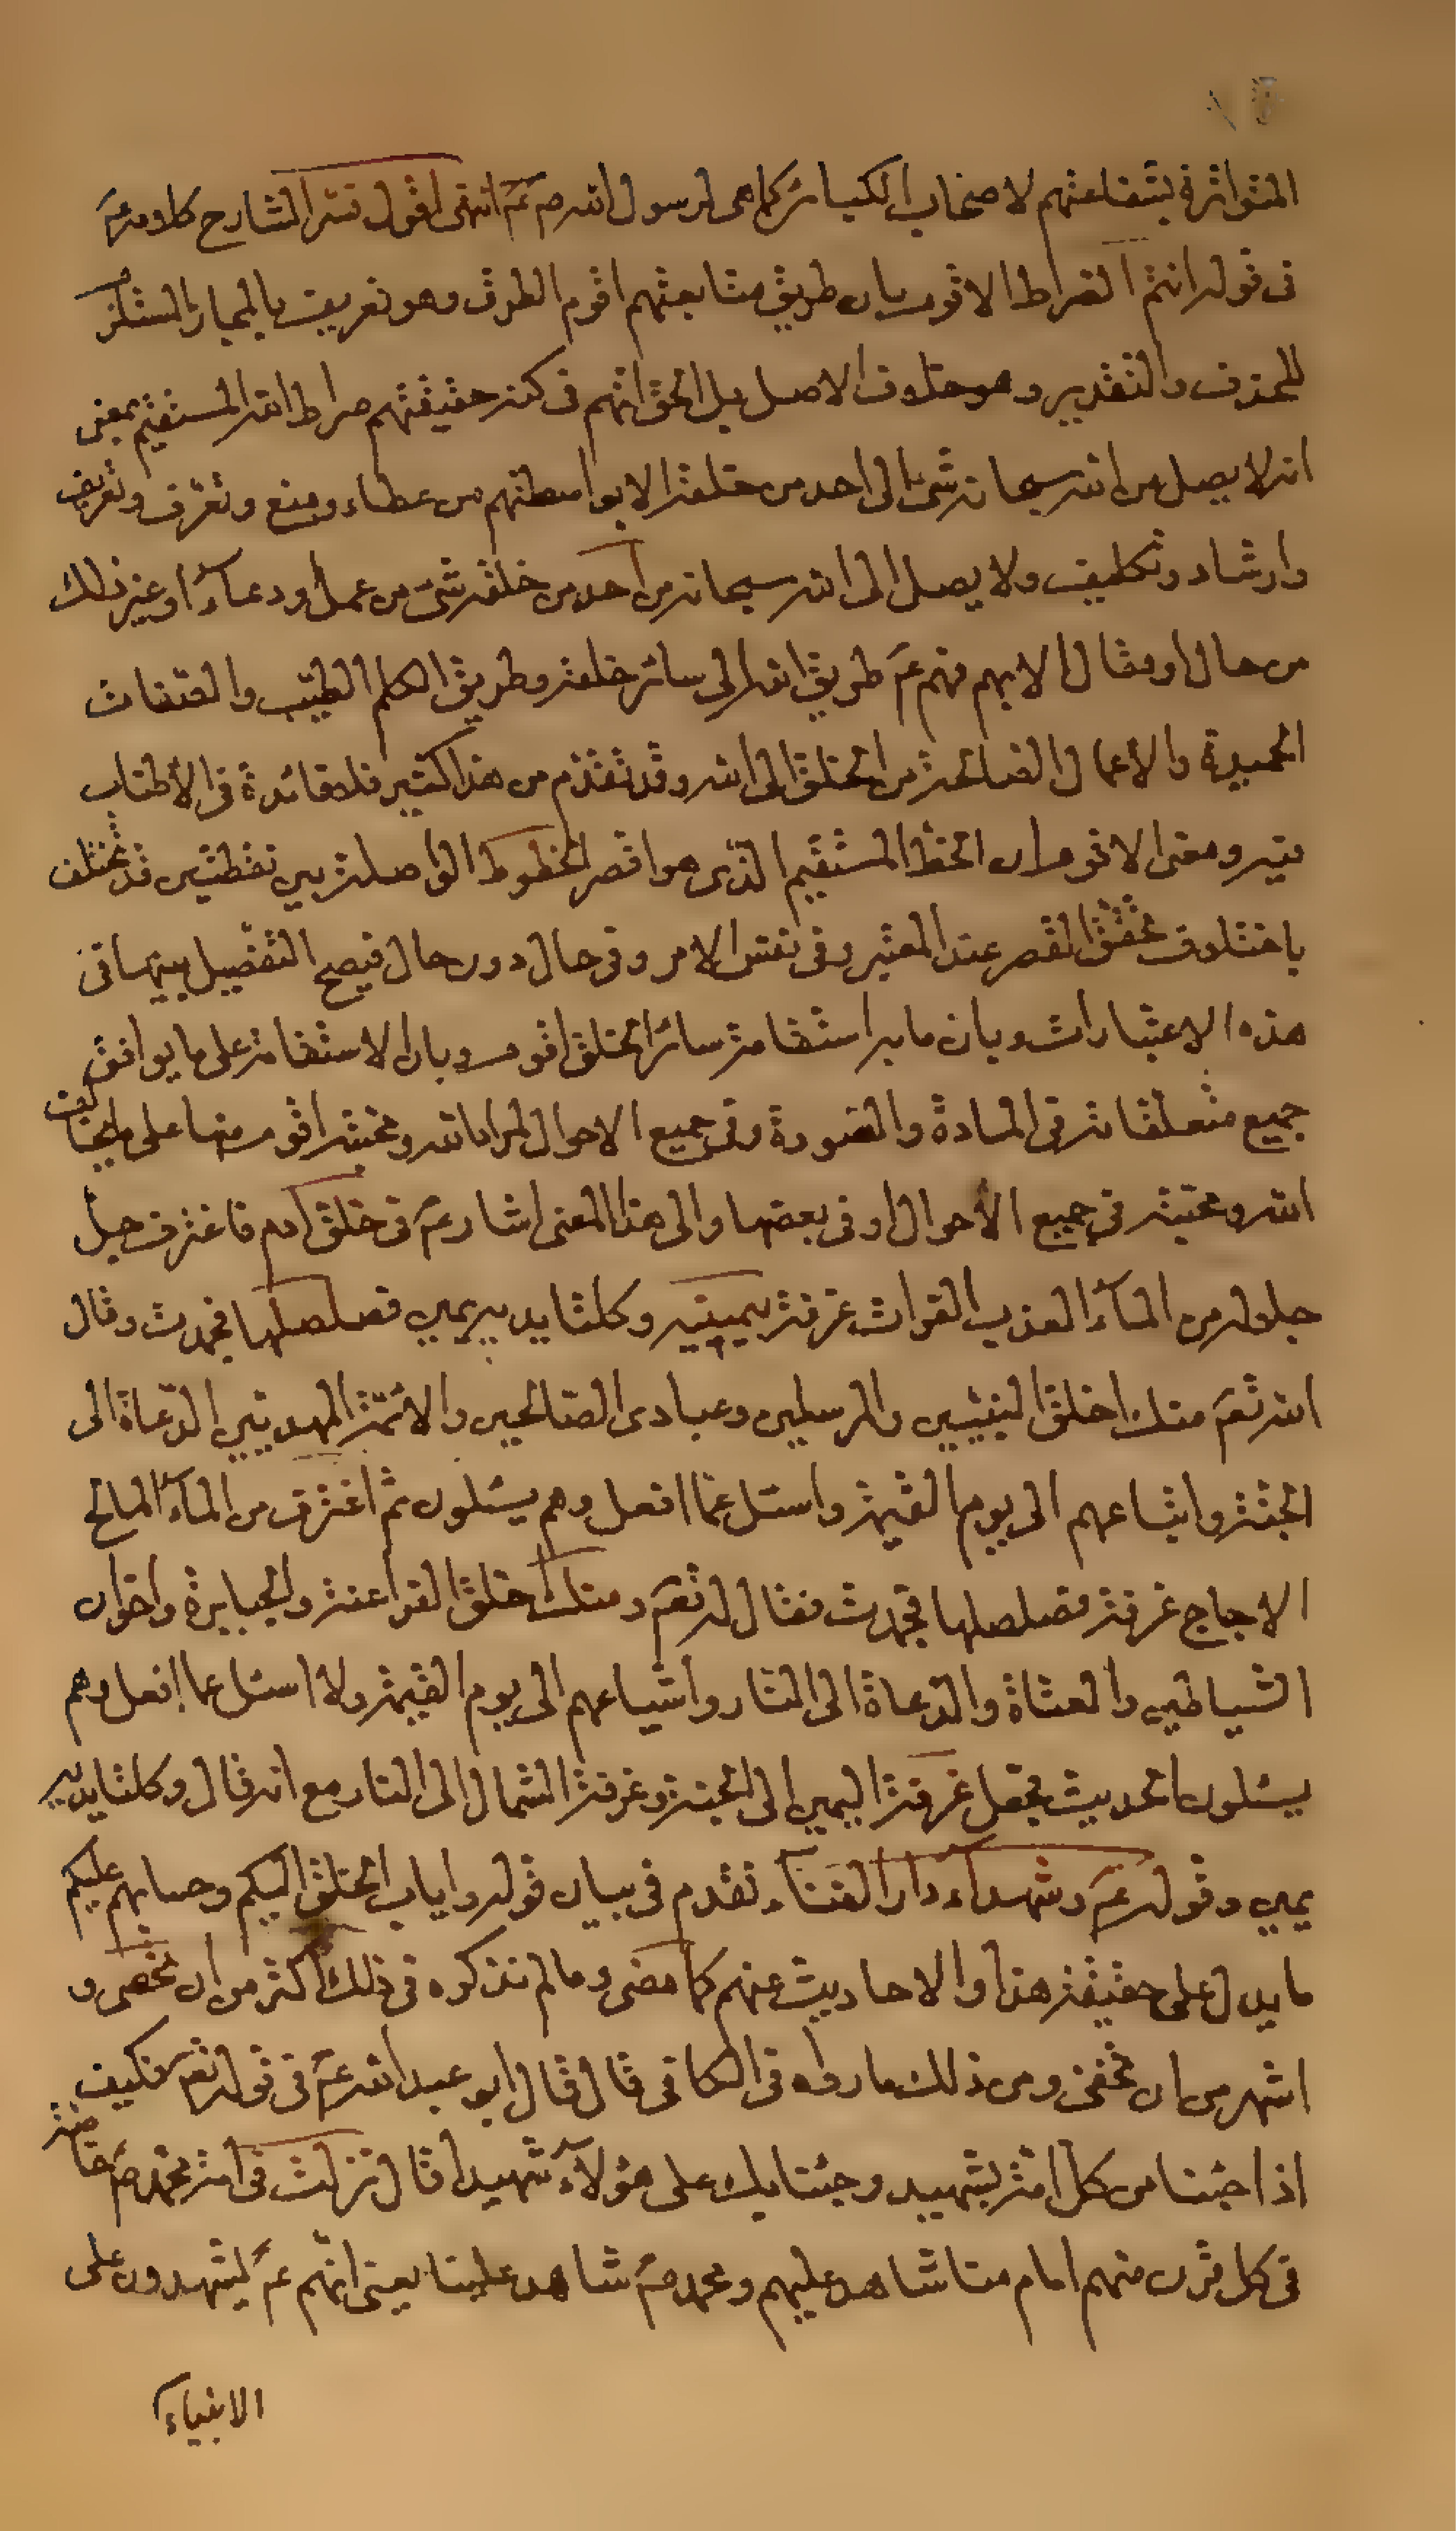 المتواترة بشفاعتهم لاصحاب الكبائر كما هى لرسول الله ص عم انتهى اقول فسّر الشارح كلامه ع
فى قوله انتم الصراط الاقوم بان طريق متابعتهم اقوم الطرق وهو تعريف بالمجاز المستلزم
للحذف والتقدير وهو خلاف الاصل بل الحق انهم فى كنه حقيقتهم صراط الله المستقيم بمعنى
انه لا يصل من الله سبحانه شئ الى احد من خلقه الا بواسطتهم من عطاء ومنع وتعرّف وتعريف
وارشاد وتكليف ولا يصل الى الله سبحانه من احد من خلقه شئ من عمل ودعاء او غير ذلك
من حال او مقال الا بهم فهم ع طريق الله الى سائر خلقه وطريق الكلم الطيّب والصفات
الحميدة والأعمال الصالحة من الخلق الى الله وقد تقدّم من هذا كثير فلا فائدة فى الأطناب
فيه ومعنى الاقوم ان الخط المستقيم الذى هو اقصر الخطوط الواصلة بين نقطتين قد تختلف
باختلاف تحقق القصر عند المعتبر وفى نفس الامر وفى حال دون حال فيصح التفضيل بينها فى
هذه الاعتبارات وبان ما به استقامة سائر الخلق اقوم وبان الاستقامة على ما يوافق
جميع متعلقاته فى المادة والصورة وفى جميع الاحوال لمراد الله ومحبته اقوم منها على ما يخالف
الله ومحبته فى جميع الأحوال او فى بعضها والى هذا المعنى اشار ع فى خلق ادم فاغترف جل
جلاله من الماء العذب الفرات غرفة بيمينه وكلتا يديه يمين فصلصلها فجمدت وقال
الله تعم منك اخلق النبيّين والمرسلين وعبادى الصالحين والائمّة المهديّين الدّعاة الى
الجنّة واتباعهم الى يوم القيمة ولا اسئل عمّا افعل وهم يسئلون ثم اغترف من الماء المالح
الاجاج غرفة فصلصلها فجمدت فقال له تعم ومنك اخلق الفراعنة والجبابرة واخوان
الشياطين والعتاة والدّعاة الى النار واشياعهم الى يوم القيمة ولا اسئل عما افعل وهم
يسئلون الحديث فجعل غرفة اليمين الى الجنة وغرفة الشمال الى النار مع انه قال وكلتا يديه
يمين وقوله ع وشهداء دار الفناء تقدم فى بيان قوله واياب الخلق اليكم وحسابهم عليكم
ما يدل على حقيقة هذا والاحاديث عنهم كما مضى وما لم نذكره فى ذلك اكثر من ان تحصى و
اشهر من ان تخفى ومن ذلك ما رواه فى الكافى قال قال ابو عبد الله ع فى قوله تعم فكيف
اذا جئنا من كل امّة بشهيد وجئنا بك على هؤلآء شهيدا قال نزلت فى امة محمد ص خاصة
فى كل قرن منهم امام منا شاهد عليهم ومحمد ص شاهد علينا يعنى انهم ع يشهدون على
الانبياء